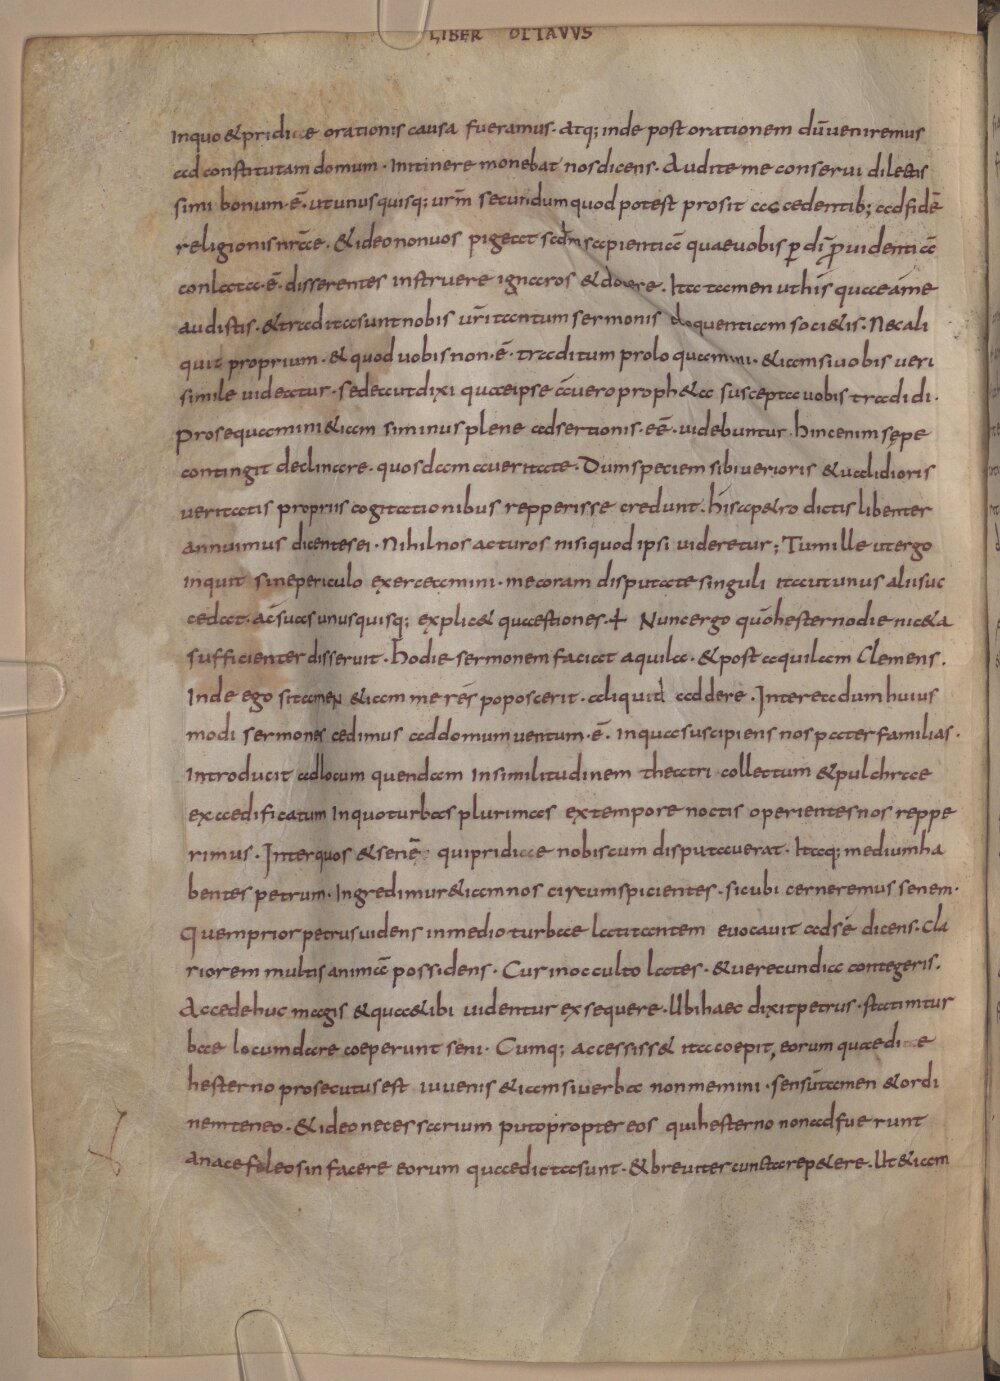 LIBER OCTAVVS
Inquo & pridiae orationis causa fueramus. Atq; inde post orationem dū ueniremus
ad constitutam domum. Initinere monebat nos dicens. Audite me conserui dilectis
simi bonum .ē. ut unus quisq; urm̄ secundum quod potest prosit accedentib; ad fidē
religionis nr̄ae. & ideo non uos pigeat scdm sapientiā quae uobis p di p̄uidentiā
conlata .ē. disserentes instruere ignaros & docere. Ita tamen ut his quae a me
audistis. & tradita sunt nobis ur̄i tantum sermonis eloquentiam soci&is. Ne ali
quit proprium. & quod uobis non .ē. traditum proloquamini. & iam si uobis ueri
simile uideatur. sed ea ut dixi quae ipse a uero proph&a suscepta uobis tradidi.
Prosequamini & iam si minus plene adsertionis .eē. uidebuntur. hinc enim sępe
contingit declinare. quosdam a ueritate. Dum speciem sibi uerioris & ualidioris
ueritatis propriis cogitationibus repperisse credunt. his a p&ro dictis libenter
annuimus dicentes ei. Nihil nos acturos nisi quod ipsi uideretur; Tum ille ut ergo
inquit sine periculo exerceamini. me coram disputate singuli ita ut unus alii suc
cedat. ac suas unusquisq; explic& quaestiones. + Nunc ergo quō hesterno die nic&a
sufficienter disseruit. hodie sermonem faciat aquila. & post aquilam Clemens.
Inde ego si tamen & iam me rés poposcerit. aliquid addere. Interea dum huius
modi sermones cedimus ad domum uentum .ē. In qua suscipiens nos pater familias.
Introducit ad locum quendam Insimilitudinem theatri collectum & pulchrae
exaedificatum In quo turbas plurimas extempore noctis operientes nos reppe
rimus. Inter quos & senē qui pridiae nobiscum disputauerat. Itaq; medium ha
bentes petrum. Ingredimur & iam nos circumspicientes. sicubi cerneremus senem.
Quem prior petrus uidens in medio turbae latitantem euocauit ad sé dicens. Cla
riorem multis animā possidens. Cur in occulto lates. & uerecundia contegeris.
Accede huc magis & quae tibi uidentur exsequere. Ubi haec dixit petrus. statim tur
bae locum dare coeperunt seni. Cumq; accessiss& ita coepit, eorum quae die
hesterno prosecutus est iuuenis & iam si uerba non memini. sensū tamen & ordi
nem teneo. & ideo necessarium puto propter eos qui hesterno non adfuerunt
eorum quae dicta sunt. & breuiter cuncta rep&ere. Ut & iam